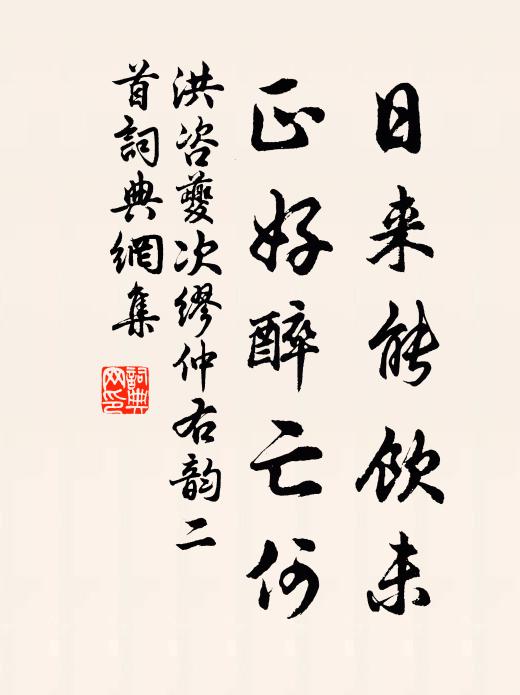 日来能饮未
正好醉亡何
洪咨夔次缪仲右韵二
首詞典網集
詞典网印